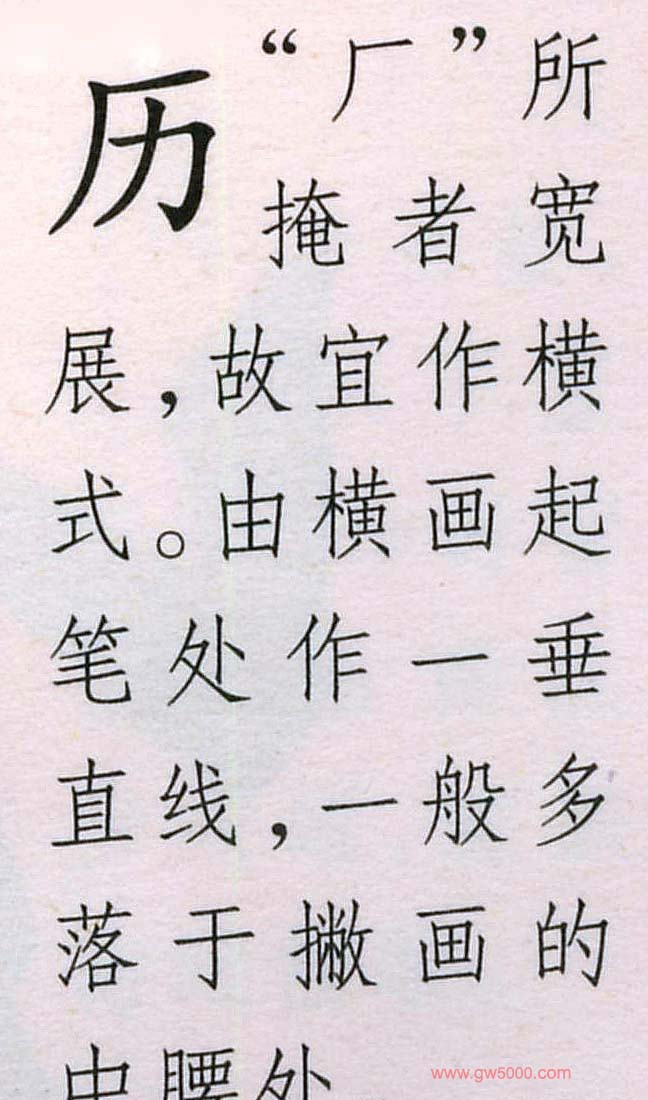 历
“厂”所
掩者宽
展，故宜作横
式。由横画起
笔处作一垂
直线，一般多
落于撇画的
中腰处
www.gw5000.com